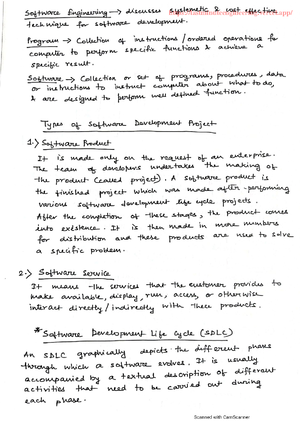 Software Engineering → discusses systematic & cost effective
technique for software development.
Program → Collection of instructions / ordered operations for
computer to perform specific functions & achieve a
specific result.
Software → Collection or set of programs, procedures, data
or instructions to instruct computer about what to do,
& are designed to perform well defined function.
Types of Software Development Project
1.) Software Product
It is made only on the request of an enterprise.
The team of developers undertakes the making of
the product (called project). A software product is
the finished project which was made after performing
various software development life cycle projects.
After the completion of these stages, the product comes
into existence. It is then made in more numbers
for distribution and these products are used to solve
a specific problem.
2.) Software Service
It means the services that the customer provides to
make available, display, run, access, or otherwise
interact directly/indirectly with these products.
* Software Development Life Cycle (SDLC)
An SDLC graphically depicts the different phases
through which a software evolves. It is usually
accompanied by a textual description of different
activities that need to be carried out during
each phase.
Scanned with CamScanner